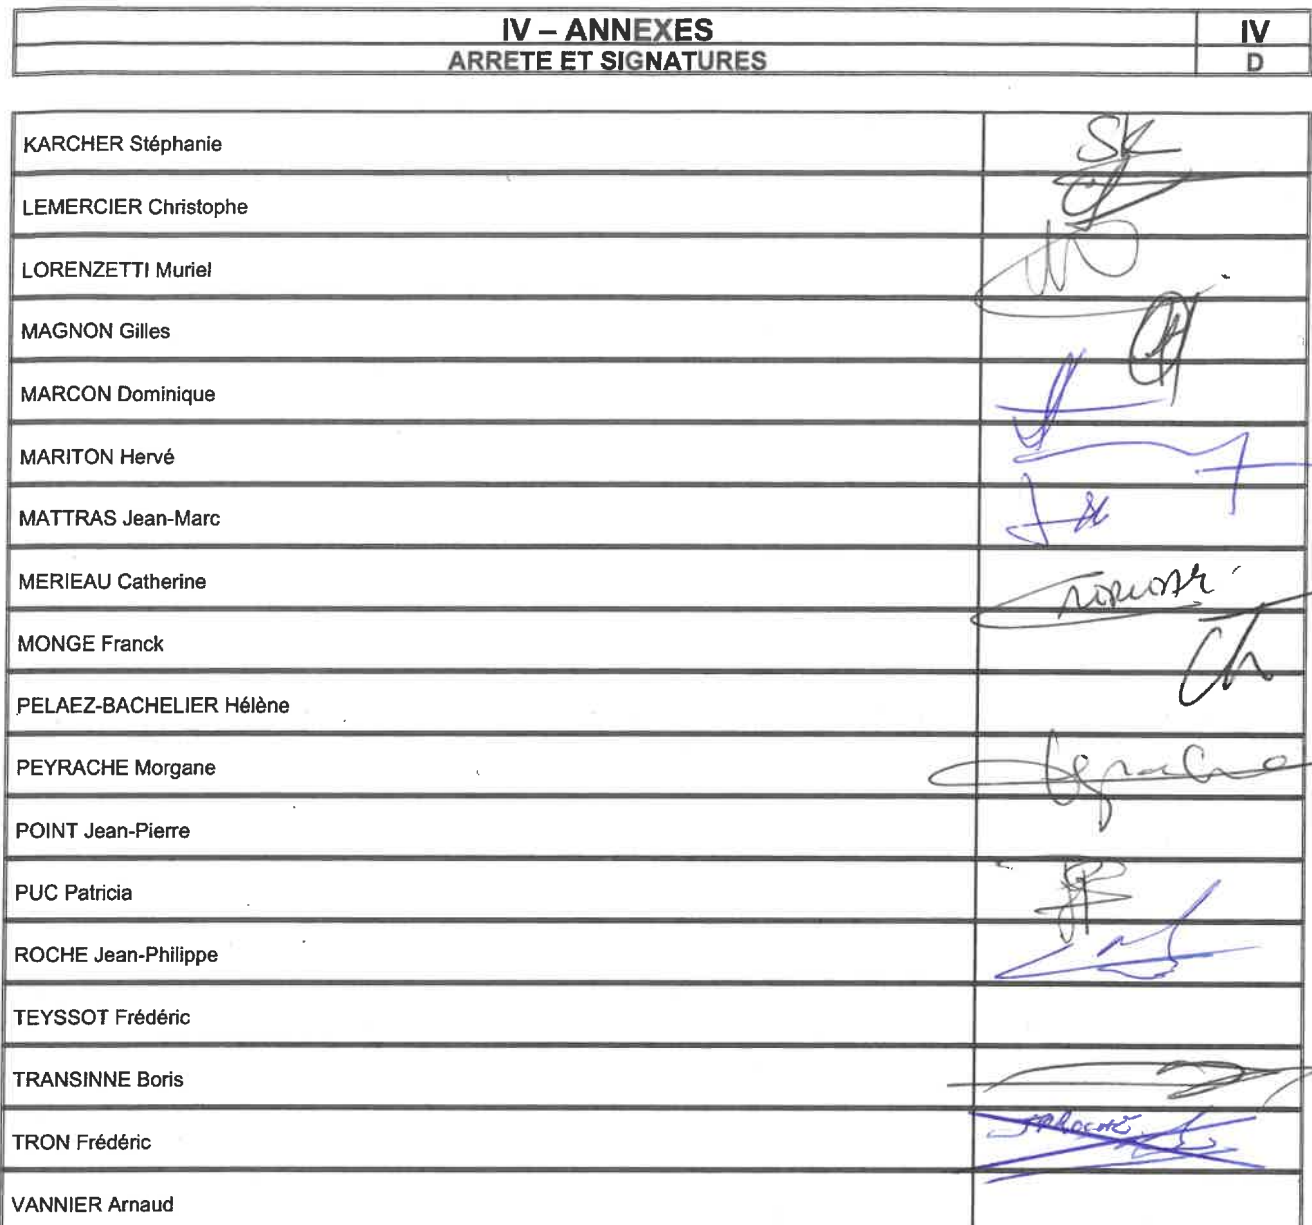 IV – ANNEXES IV
ARRETE ET SIGNATURES D
KARCHER Stéphanie SK
LEMERCIER Christophe
LORENZETTI Muriel
MAGNON Gilles
MARCON Dominique
MARITON Hervé
MATTRAS Jean-Marc
MERIEAU Catherine
MONGE Franck
PELAEZ-BACHELIER Hélène
PEYRACHE Morgane
POINT Jean-Pierre
PUC Patricia
ROCHE Jean-Philippe
TEYSSOT Frédéric
TRANSINNE Boris
TRON Frédéric
VANNIER Arnaud